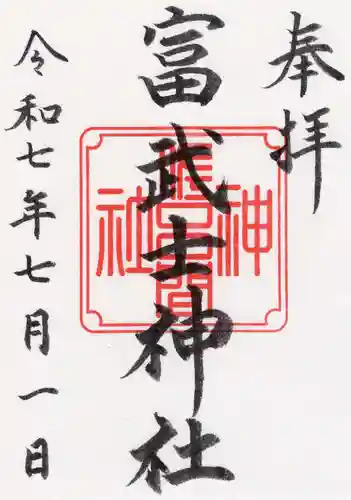 奉拝
富武士神社
令和七年七月一日